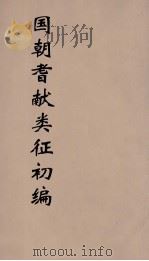 国朝耆献类征初编
www.mtoou.info